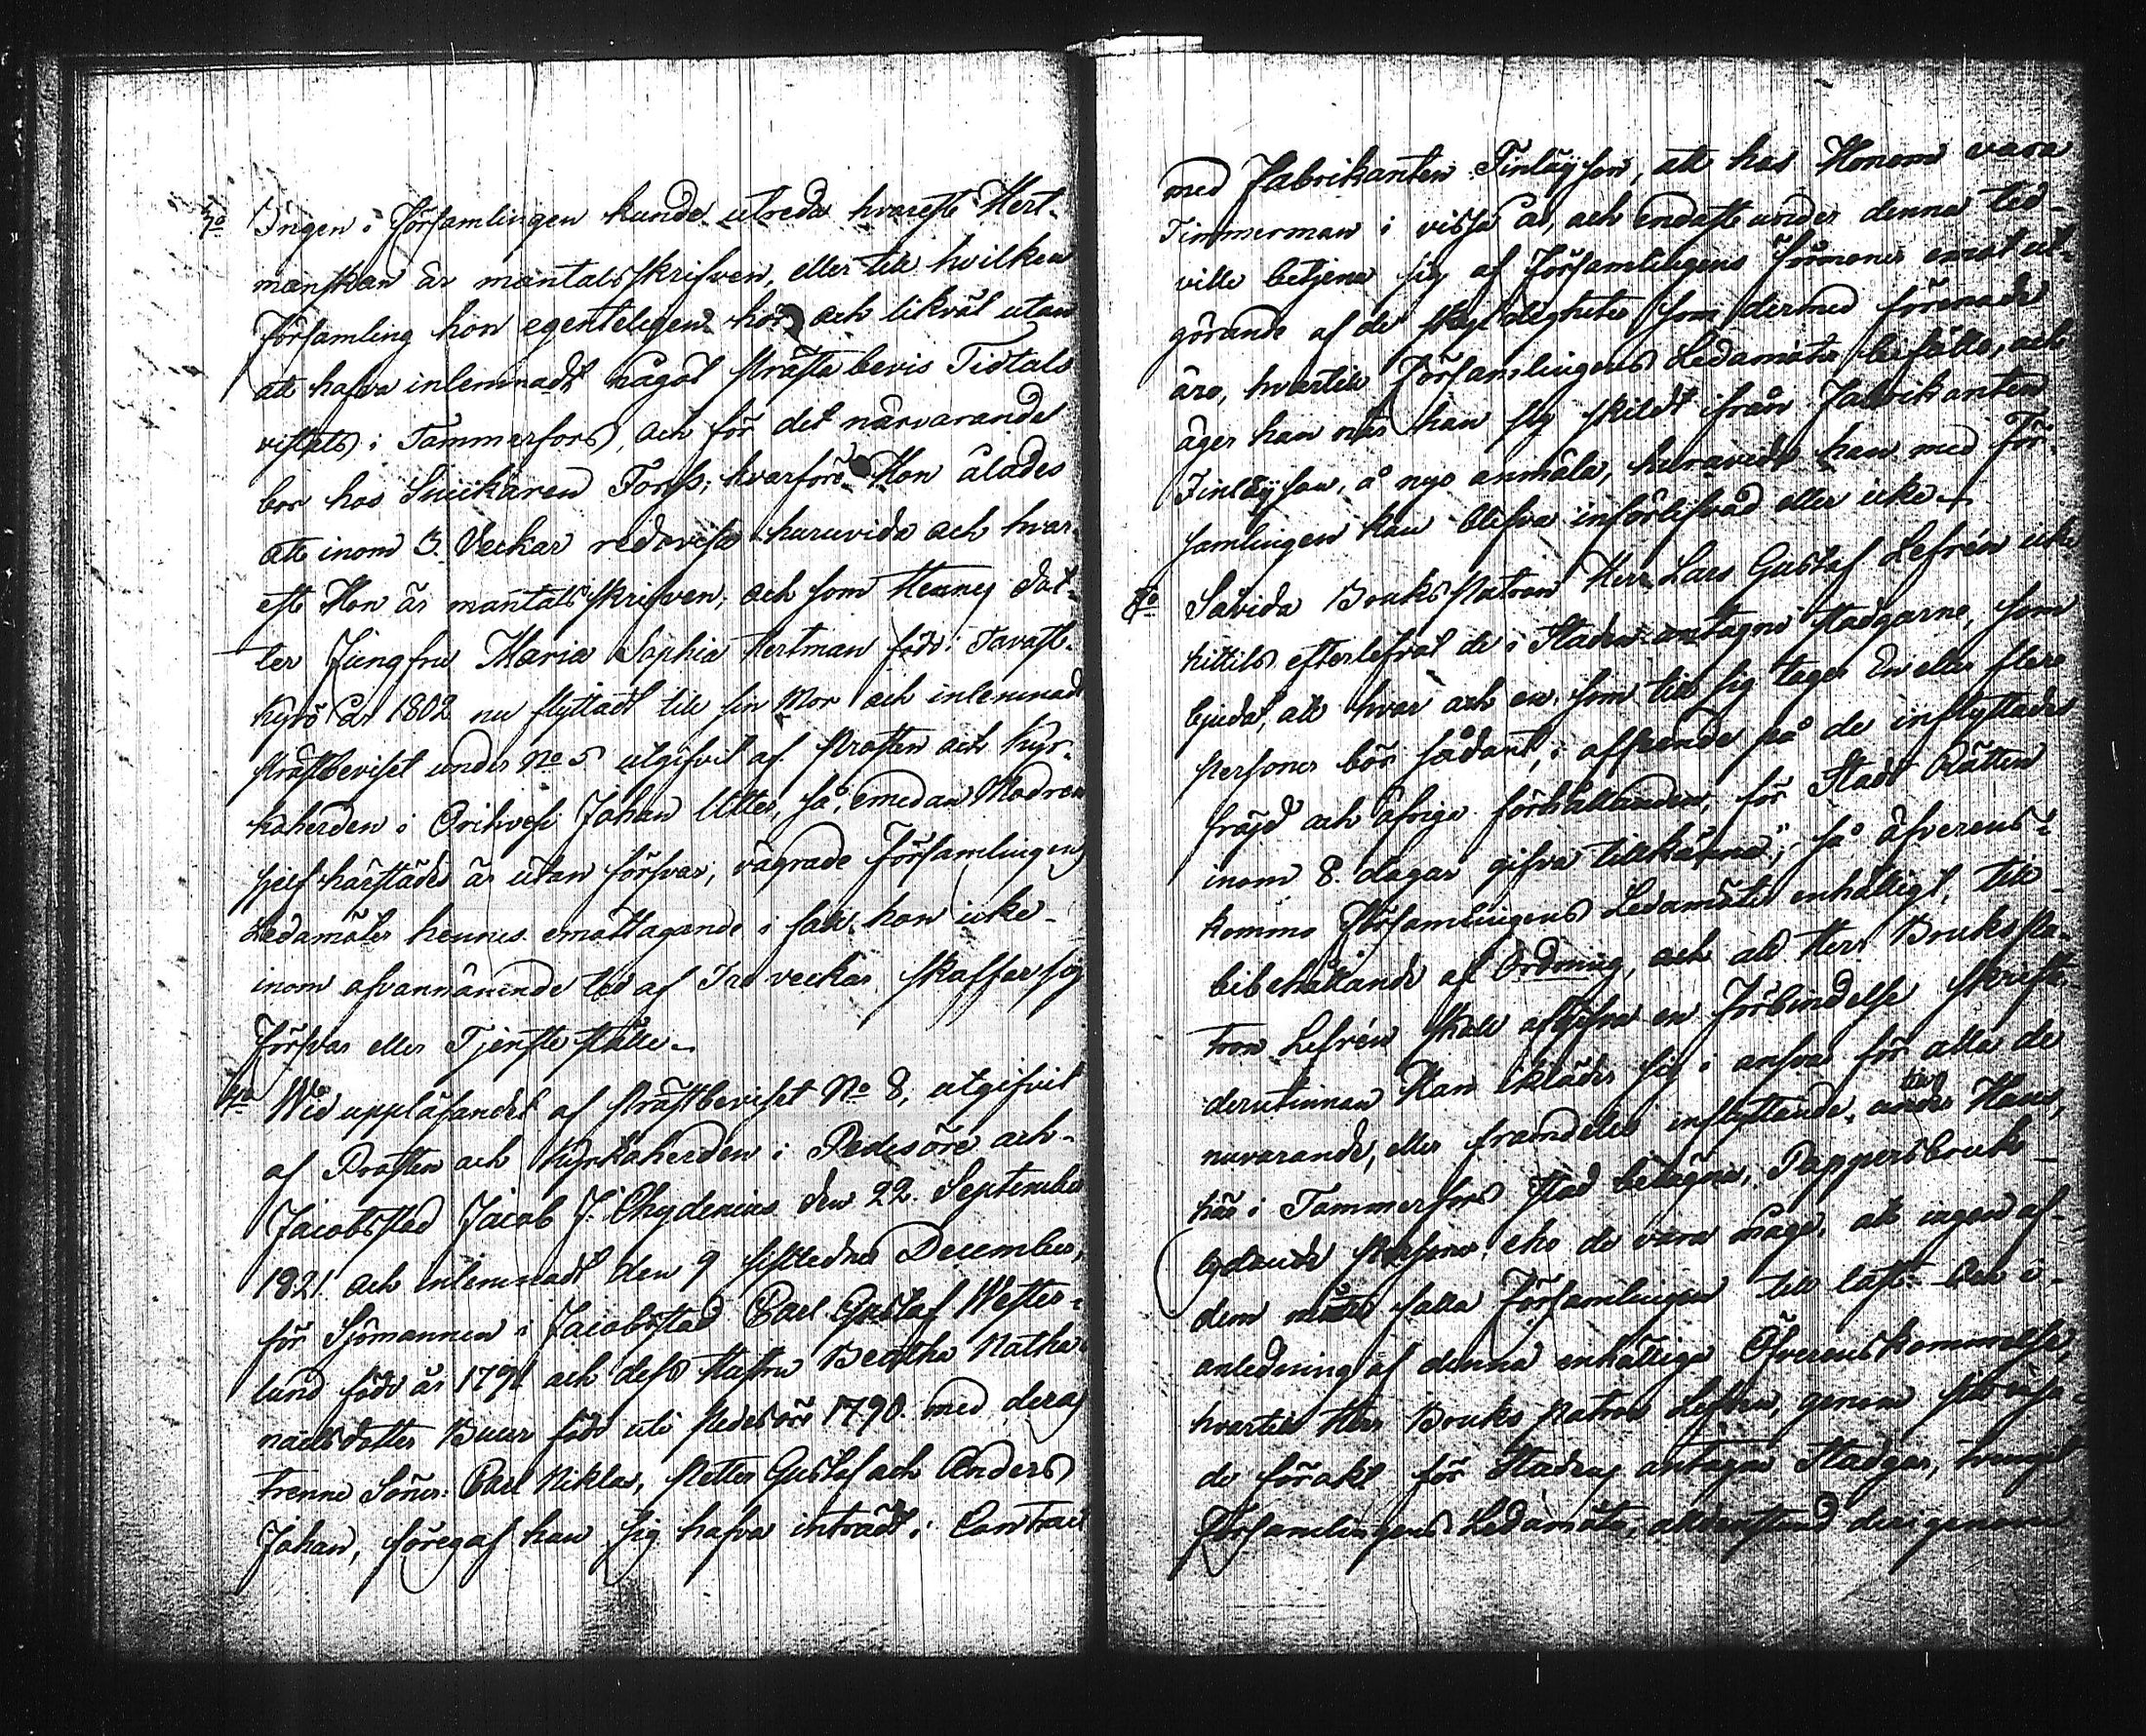 3o Ingen i Församlingen kunde utreda hvarest Hert-
manskan är mantalsskrifven, eller till hvilken
Församling hon egenteligen hör och likväl utan
att hafva inlemnadt något Prästebevis Tidtals
vistats i Tammerfors, och för det närvarande
bor hos Snickaren Forss; hvarföre Hon ålades
att inom 3. Veckar redovisa huruvida och hvar-
est Hon är mantalsskrifven, och som Hennes dot-
ter Jungfru Maria Sophia Hertman född i Tavast-
kyrö år 1802 nu flyttadt till sin Mor och inlemnadt
Prästbeviset under No 5 utgifvit af Prosten och Kyr-
koherden i Orihvesi Johan Utter, så, emedan Modren
sjelf härstädes är utan försvar, vägrade Församlingens
Ledamöter hennes emottagande i fall hon icke
inom ofvannämnde tid af Tre veckar skaffar sig
Försvar eller Tjenste ställe.
4o Wid uppläsandet af Prästbeviset No 8, utgifvit
af Prosten och Kyrkoherden i Pedersöre och
Jacobstad Jacob J. Chydenius den 22. September
1821 och inlemnadt den 9 sistledne December,
för Sjömannen i Jacobstad Carl Gustaf Wester-
lund född år 1791 och dess Hustru Beatha Natha-
naelsdotter Buur född uti Pedersöre 1790. med deras
trenne Söner: Carl Niklas, Petter Gustaf och Anders
Johan, föregaf han sig hafva inträdt i Contract
med Fabrikanten Finlayson, att hos Honom vara
Timmerman i vissa år, och endast under denna tid
ville betjena sig af Församlingens förmoner emot ut-
görande af de skyldigheter som dermed förenade
äro, hvartill Församlingens Ledamöter biföllo, och
äger han när han sig skildt ifrån Fabrikanten
Finlayson, å nyo anmäla, huruvida han med För-
samlingen kan blifva införlifvad eller icke.
5o Såvida Bruks Patron Herr Lars Gustaf Lefrén icke
hittils efterlefvat de i Staden antagne stadgarne, som
bjudat, att hvar och en, som till sig tager En eller flere
Personer bör sådant, i afseende på de inflyttades
fräjd och öfrige förhållanden, för Stads Rätten
inom 8. dagar gifva tillkänna; så öfverens-
kommo Församlingens Ledamöter enhälligt, till
bibehållande af Ordning, och att Herr Bruks Pa-
tron Lefrén skall afgifva en Förbindelse skrift
derutinnan Han ikläder sig i ansvar för alla de
nuvarande, eller framdeles inflyttande, till Hans,
här i Tammerfors stad belägne, Pappersbruk
lydande Personer eho de vara måge, att ingen af
dem måtte falla Församlingen till last. Och i
anledning af denna enhällige Öfverenskommelse,
hvartill Herr Bruks Patron Lefrén, genom
de förakt för Stadens antagne Stadgar, tvungit
Församlingens Ledamöter, alldenstund derigenom